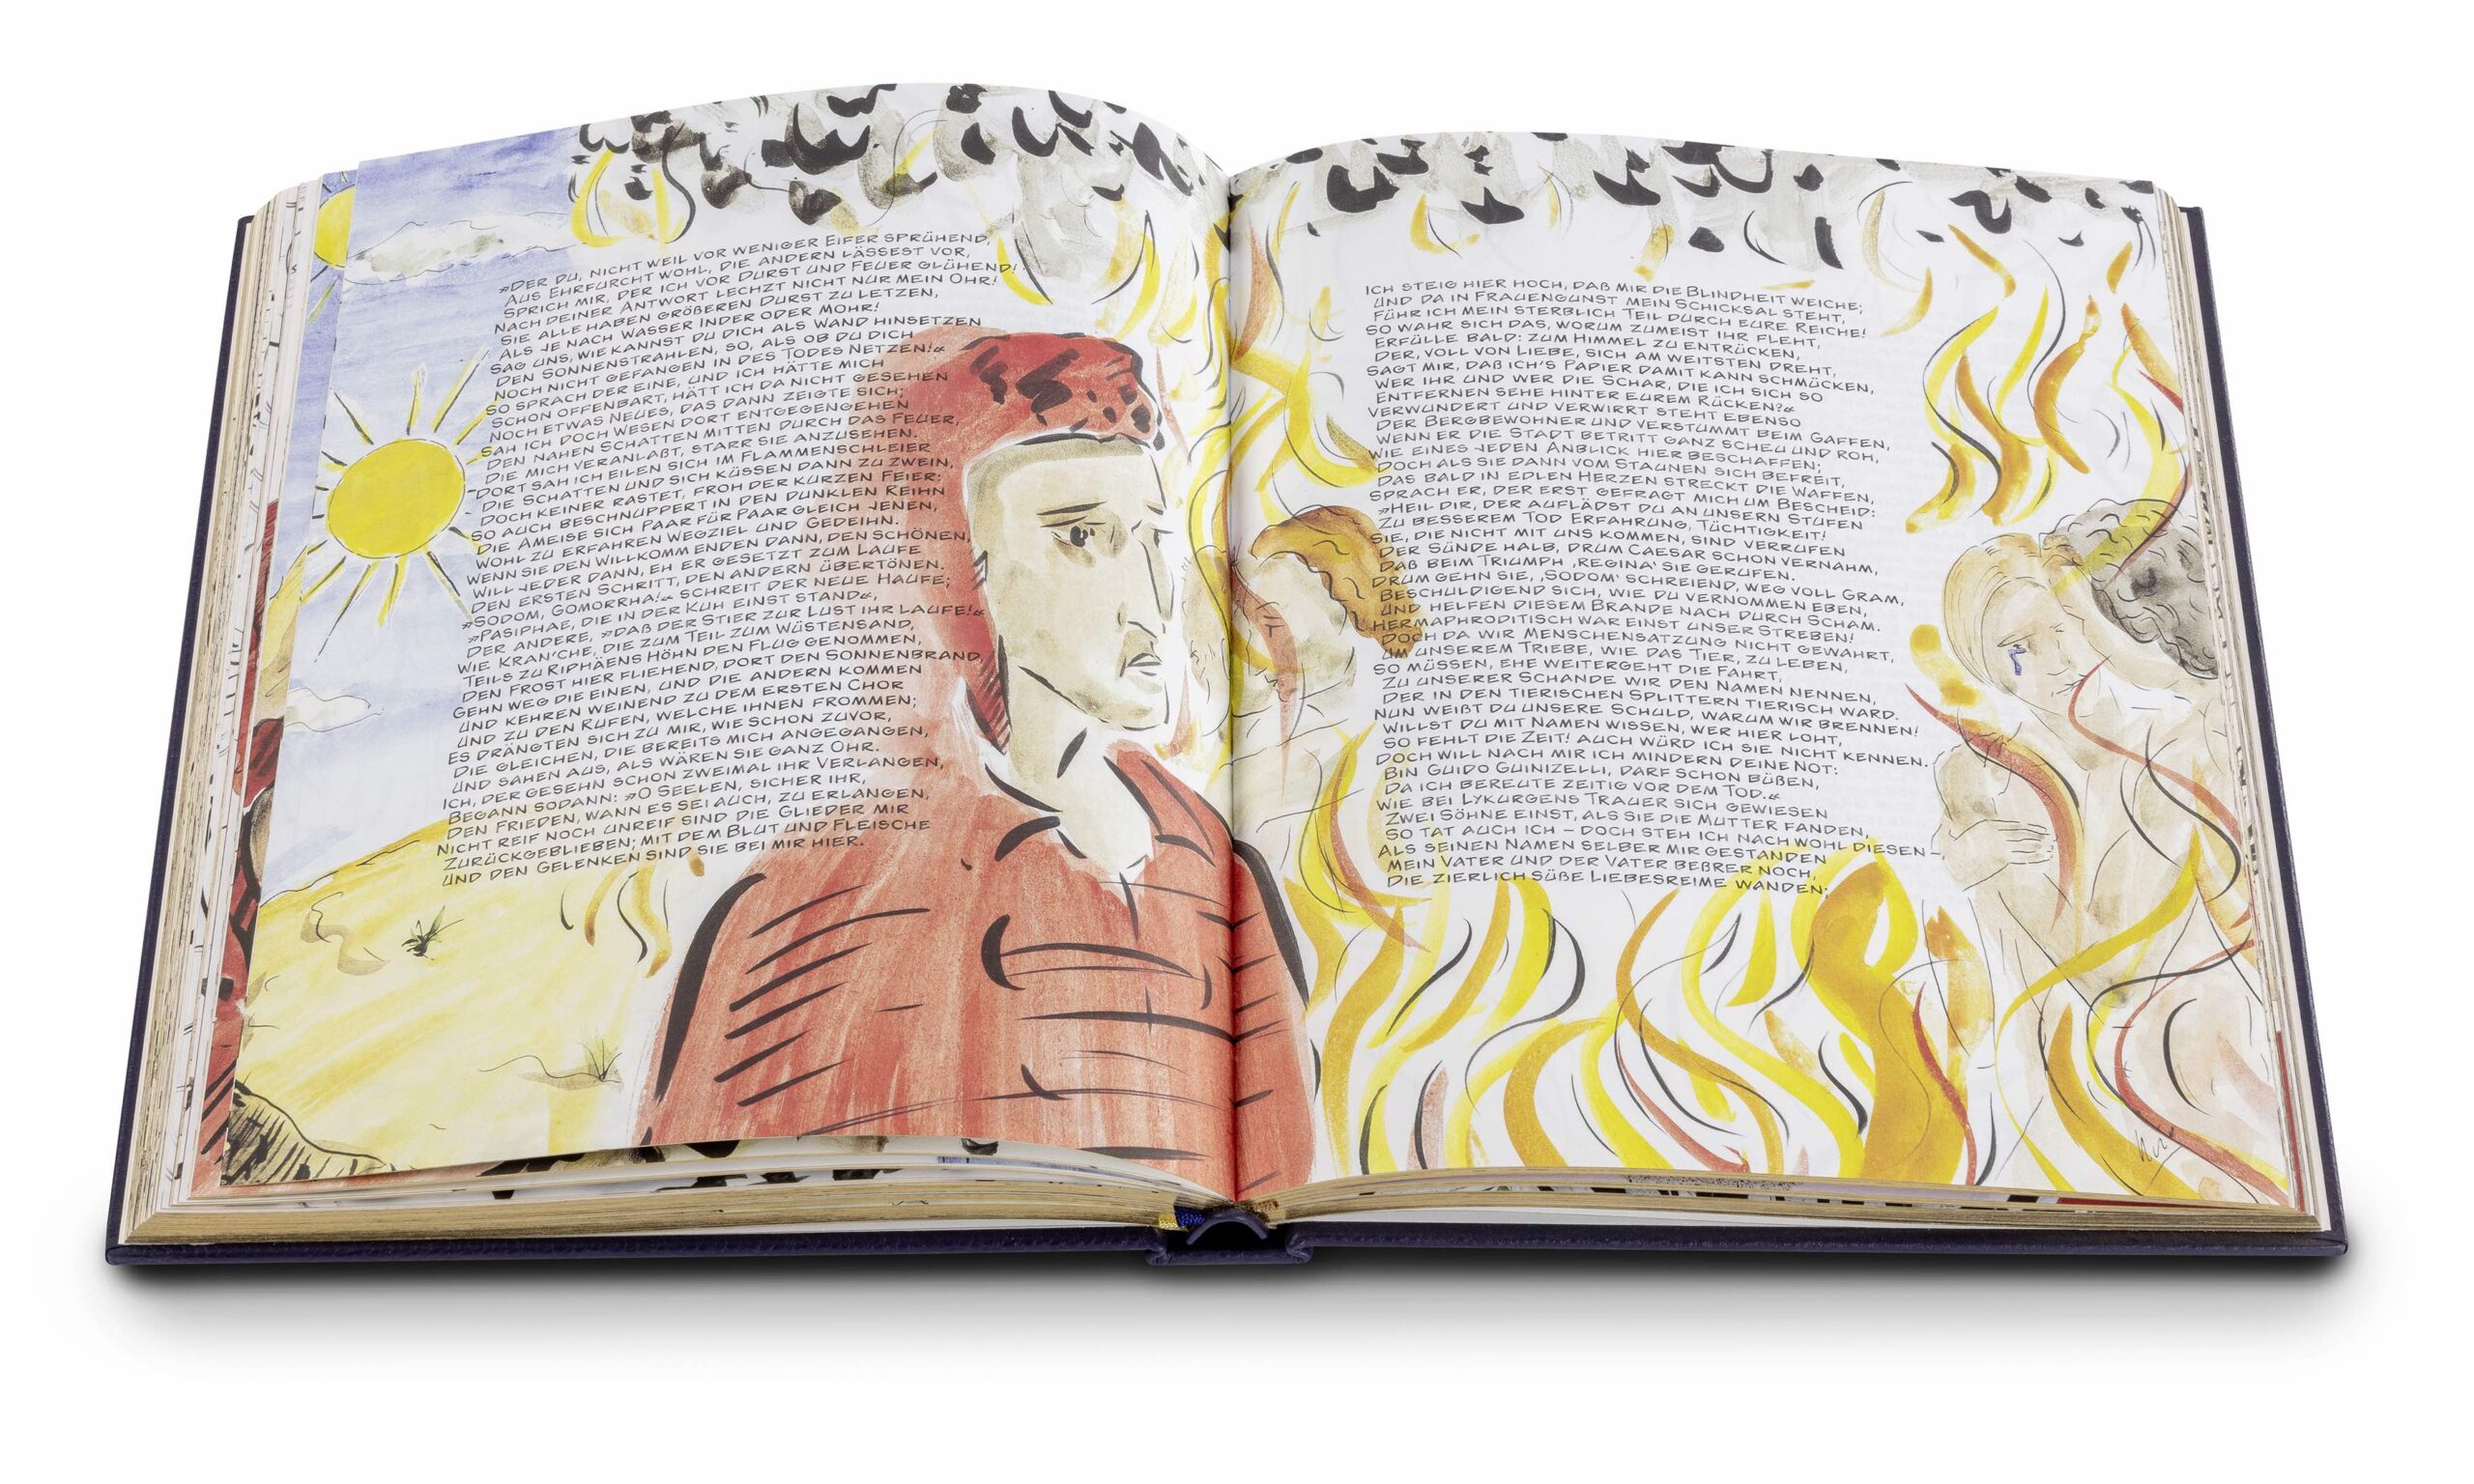 »DER DU, NICHT WEIL VOR WENIGER EIFER SPRÜHEND,
AUS EHRFURCHT WOHL, DIE ANDERN LÄSSEST VOR,
SPRICH MIR, DER ICH VOR DURST UND FEUER GLÜHEND!
NACH DEINER ANTWORT LECHZT NICHT NUR MEIN OHR!
SIE ALLE HABEN GRÖßEREN DURST ZU LETZEN,
ALS JE NACH WASSER INDER ODER MOHR!
SAG UNS, WIE KANNST DU DICH ALS WAND HINSETZEN
DEN SONNENSTRAHLEN, SO, ALS OB DU DICH
NOCH NICHT GEFANGEN IN DES TODES NETZEN!«
SO SPRACH DER EINE, UND ICH HÄTTE MICH
SCHON OFFENBART, HÄTT ICH DA NICHT GESEHEN
NOCH ETWAS NEUES, DAS DANN ZEIGTE SICH;
SAH ICH DOCH WESEN DORT ENTGEGENGEHEN
DEN NAHEN SCHATTEN MITTEN DURCH DAS FEUER,
DIE MICH VERANLAßT, STARR SIE ANZUSEHEN.
DORT SAH ICH EILEN SICH IM FLAMMENSCHLEIER
DIE SCHATTEN UND SICH KÜSSEN DANN ZU ZWEIN,
DOCH KEINER RASTET, FROH DER KURZEN FEIER;
SO AUCH BESCHNUPPERT IN DEN DUNKLEN REIHN
DIE AMEISE SICH PAAR FÜR PAAR GLEICH JENEN,
WOHL ZU ERFAHREN WEGZIEL UND GEDEIHN.
WENN SIE DEN WILLKOMM ENDEN DANN, DEN SCHÖNEN,
WILL JEDER DANN, EH ER GESETZT ZUM LAUFE
DEN ERSTEN SCHRITT, DEN ANDERN ÜBERTÖNEN.
»SODOM, GOMORRHA!« SCHREIT DER NEUE HAUFE;
»PASIPHAE, DIE IN DER KUH EINST STAND«,
DER ANDERE, »DAß DER STIER ZUR LUST IHR LAUFE!«
WIE KRAN'CHE, DIE ZUM TEIL ZUM WÜSTENSAND,
TEILS ZU RIPHÄENS HÖHN DEN FLUG GENOMMEN,
DEN FROST HIER FLIEHEND, DORT DEN SONNENBRAND,
GEHN WEG DIE EINEN, UND DIE ANDERN KOMMEN
UND KEHREN WEINEND ZU DEM ERSTEN CHOR
UND ZU DEN RUFEN, WELCHE IHNEN FROMMEN;
ES DRÄNGTEN SICH ZU MIR, WIE SCHON ZUVOR,
DIE GLEICHEN, DIE BEREITS MICH ANGEGANGEN,
UND SAHEN AUS, ALS WÄREN SIE GANZ OHR.
ICH, DER GESEHN SCHON ZWEIMAL IHR VERLANGEN,
BEGANN SODANN: »O SEELEN, SICHER IHR,
DEN FRIEDEN, WANN ES SEI AUCH, ZU ERLANGEN,
NICHT REIF NOCH UNREIF SIND DIE GLIEDER MIR
ZURÜCKGEBLIEBEN; MIT DEM BLUT UND FLEISCHE
UND DEN GELENKEN SIND SIE BEI MIR HIER.
ICH STEIG HIER HOCH, DAß MIR DIE BLINDHEIT WEICHE;
UND DA IN FRAUENGUNST MEIN SCHICKSAL STEHT,
FÜHR ICH MEIN STERBLICH TEIL DURCH EURE REICHE!
SO WAHR SICH DAS, WORUM ZUMEIST IHR FLEHT,
ERFÜLLE BALD: ZUM HIMMEL ZU ENTRÜCKEN,
DER, VOLL VON LIEBE, SICH AM WEITSTEN DREHT,
SAGT MIR, DAß ICH'S PAPIER DAMIT KANN SCHMÜCKEN,
WER IHR UND WER DIE SCHAR, DIE ICH SICH SO
ENTFERNEN SEHE HINTER EUREM RÜCKEN?«
VERWUNDERT UND VERWIRRT STEHT EBENSO
DER BERGBEWOHNER UND VERSTUMMT BEIM GAFFEN,
WENN ER DIE STADT BETRITT GANZ SCHEU UND ROH,
WIE EINES JEDEN ANBLICK HIER BESCHAFFEN;
DOCH ALS SIE DANN VOM STAUNEN SICH BEFREIT,
DAS BALD IN EDLEN HERZEN STRECKT DIE WAFFEN,
SPRACH ER, DER ERST GEFRAGT MICH UM BESCHEID:
»HEIL DIR, DER AUFLÄDST DU AN UNSERN STUFEN
ZU BESSEREM TOD ERFAHRUNG, TÜCHTIGKEIT!
SIE, DIE NICHT MIT UNS KOMMEN, SIND VERRUFEN
DER SÜNDE HALB, DRUM CAESAR SCHON VERNAHM,
DAß BEIM TRIUMPH ‚REGINA' SIE GERUFEN.
DRUM GEHN SIE, ‚SODOM' SCHREIEND, WEG VOLL GRAM,
BESCHULDIGEND SICH, WIE DU VERNOMMEN EBEN,
UND HELFEN DIESEM BRANDE NACH DURCH SCHAM.
HERMAPHRODITISCH WAR EINST UNSER STREBEN!
DOCH DA WIR MENSCHENSATZUNG NICHT GEWAHRT,
UM UNSEREM TRIEBE, WIE DAS TIER, ZU LEBEN,
SO MÜSSEN, EHE WEITERGEHT DIE FAHRT,
ZU UNSERER SCHANDE WIR DEN NAMEN NENNEN,
DER IN DEN TIERISCHEN SPLITTERN TIERISCH WARD.
NUN WEIßT DU UNSERE SCHULD, WARUM WIR BRENNEN!
WILLST DU MIT NAMEN WISSEN, WER HIER LOHT,
SO FEHLT DIE ZEIT! AUCH WÜRD ICH SIE NICHT KENNEN.
DOCH WILL NACH MIR ICH MINDERN DEINE NOT:
BIN GUIDO GUINIZELLI, DARF SCHON BÜßEN,
DA ICH BEREUTE ZEITIG VOR DEM TOD.«
WIE BEI LYKURGENS TRAUER SICH GEWIESEN
ZWEI SÖHNE EINST, ALS SIE DIE MUTTER FANDEN,
SO TAT AUCH ICH – DOCH STEH ICH NACH WOHL DIESEN –
ALS SEINEN NAMEN SELBER MIR GESTANDEN
MEIN VATER UND DER VATER BEßRER NOCH,
DIE ZIERLICH SÜßE LIEBESREIME WANDEN;